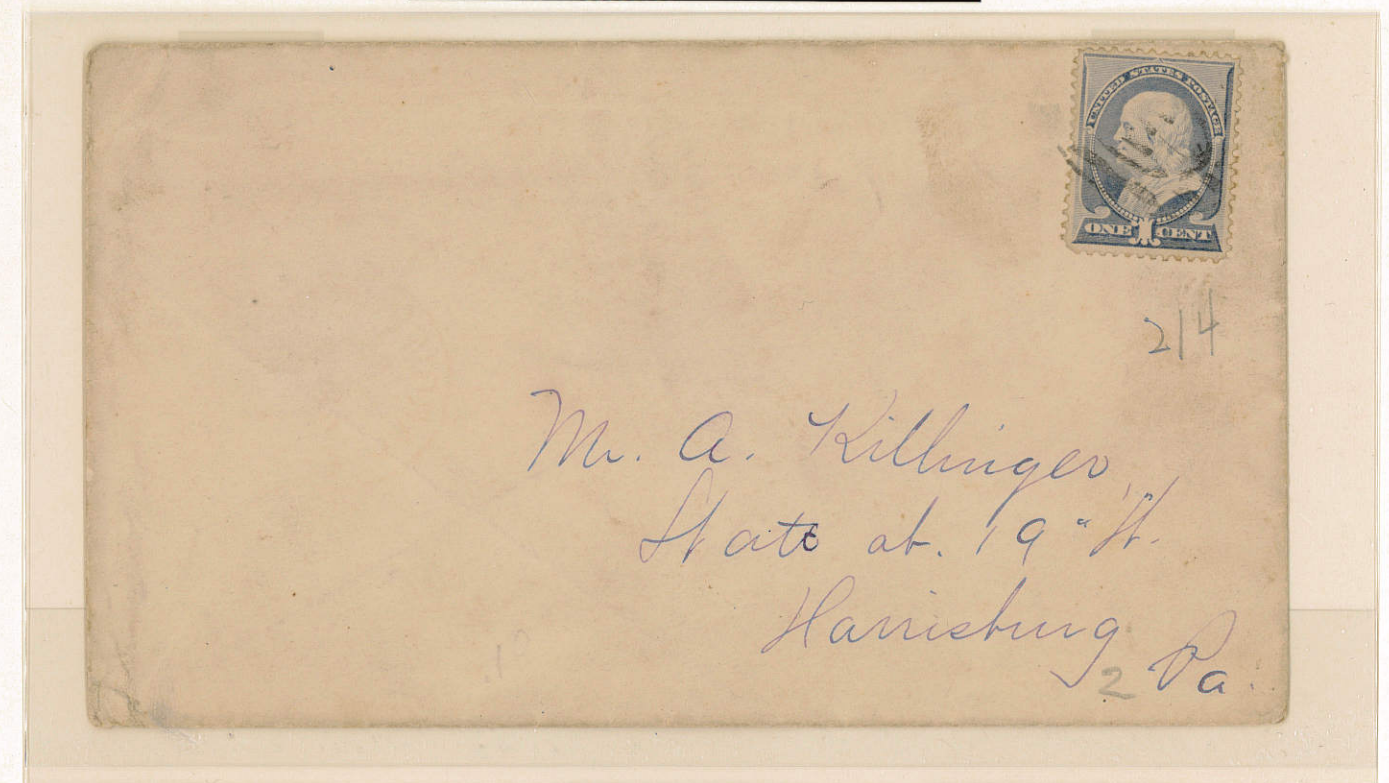 UNITED STATES POSTAGE
ONE 1 CENT
214
Mr. A. Killinger,
State ab. 19" St.
Harrisburg
2 Pa.